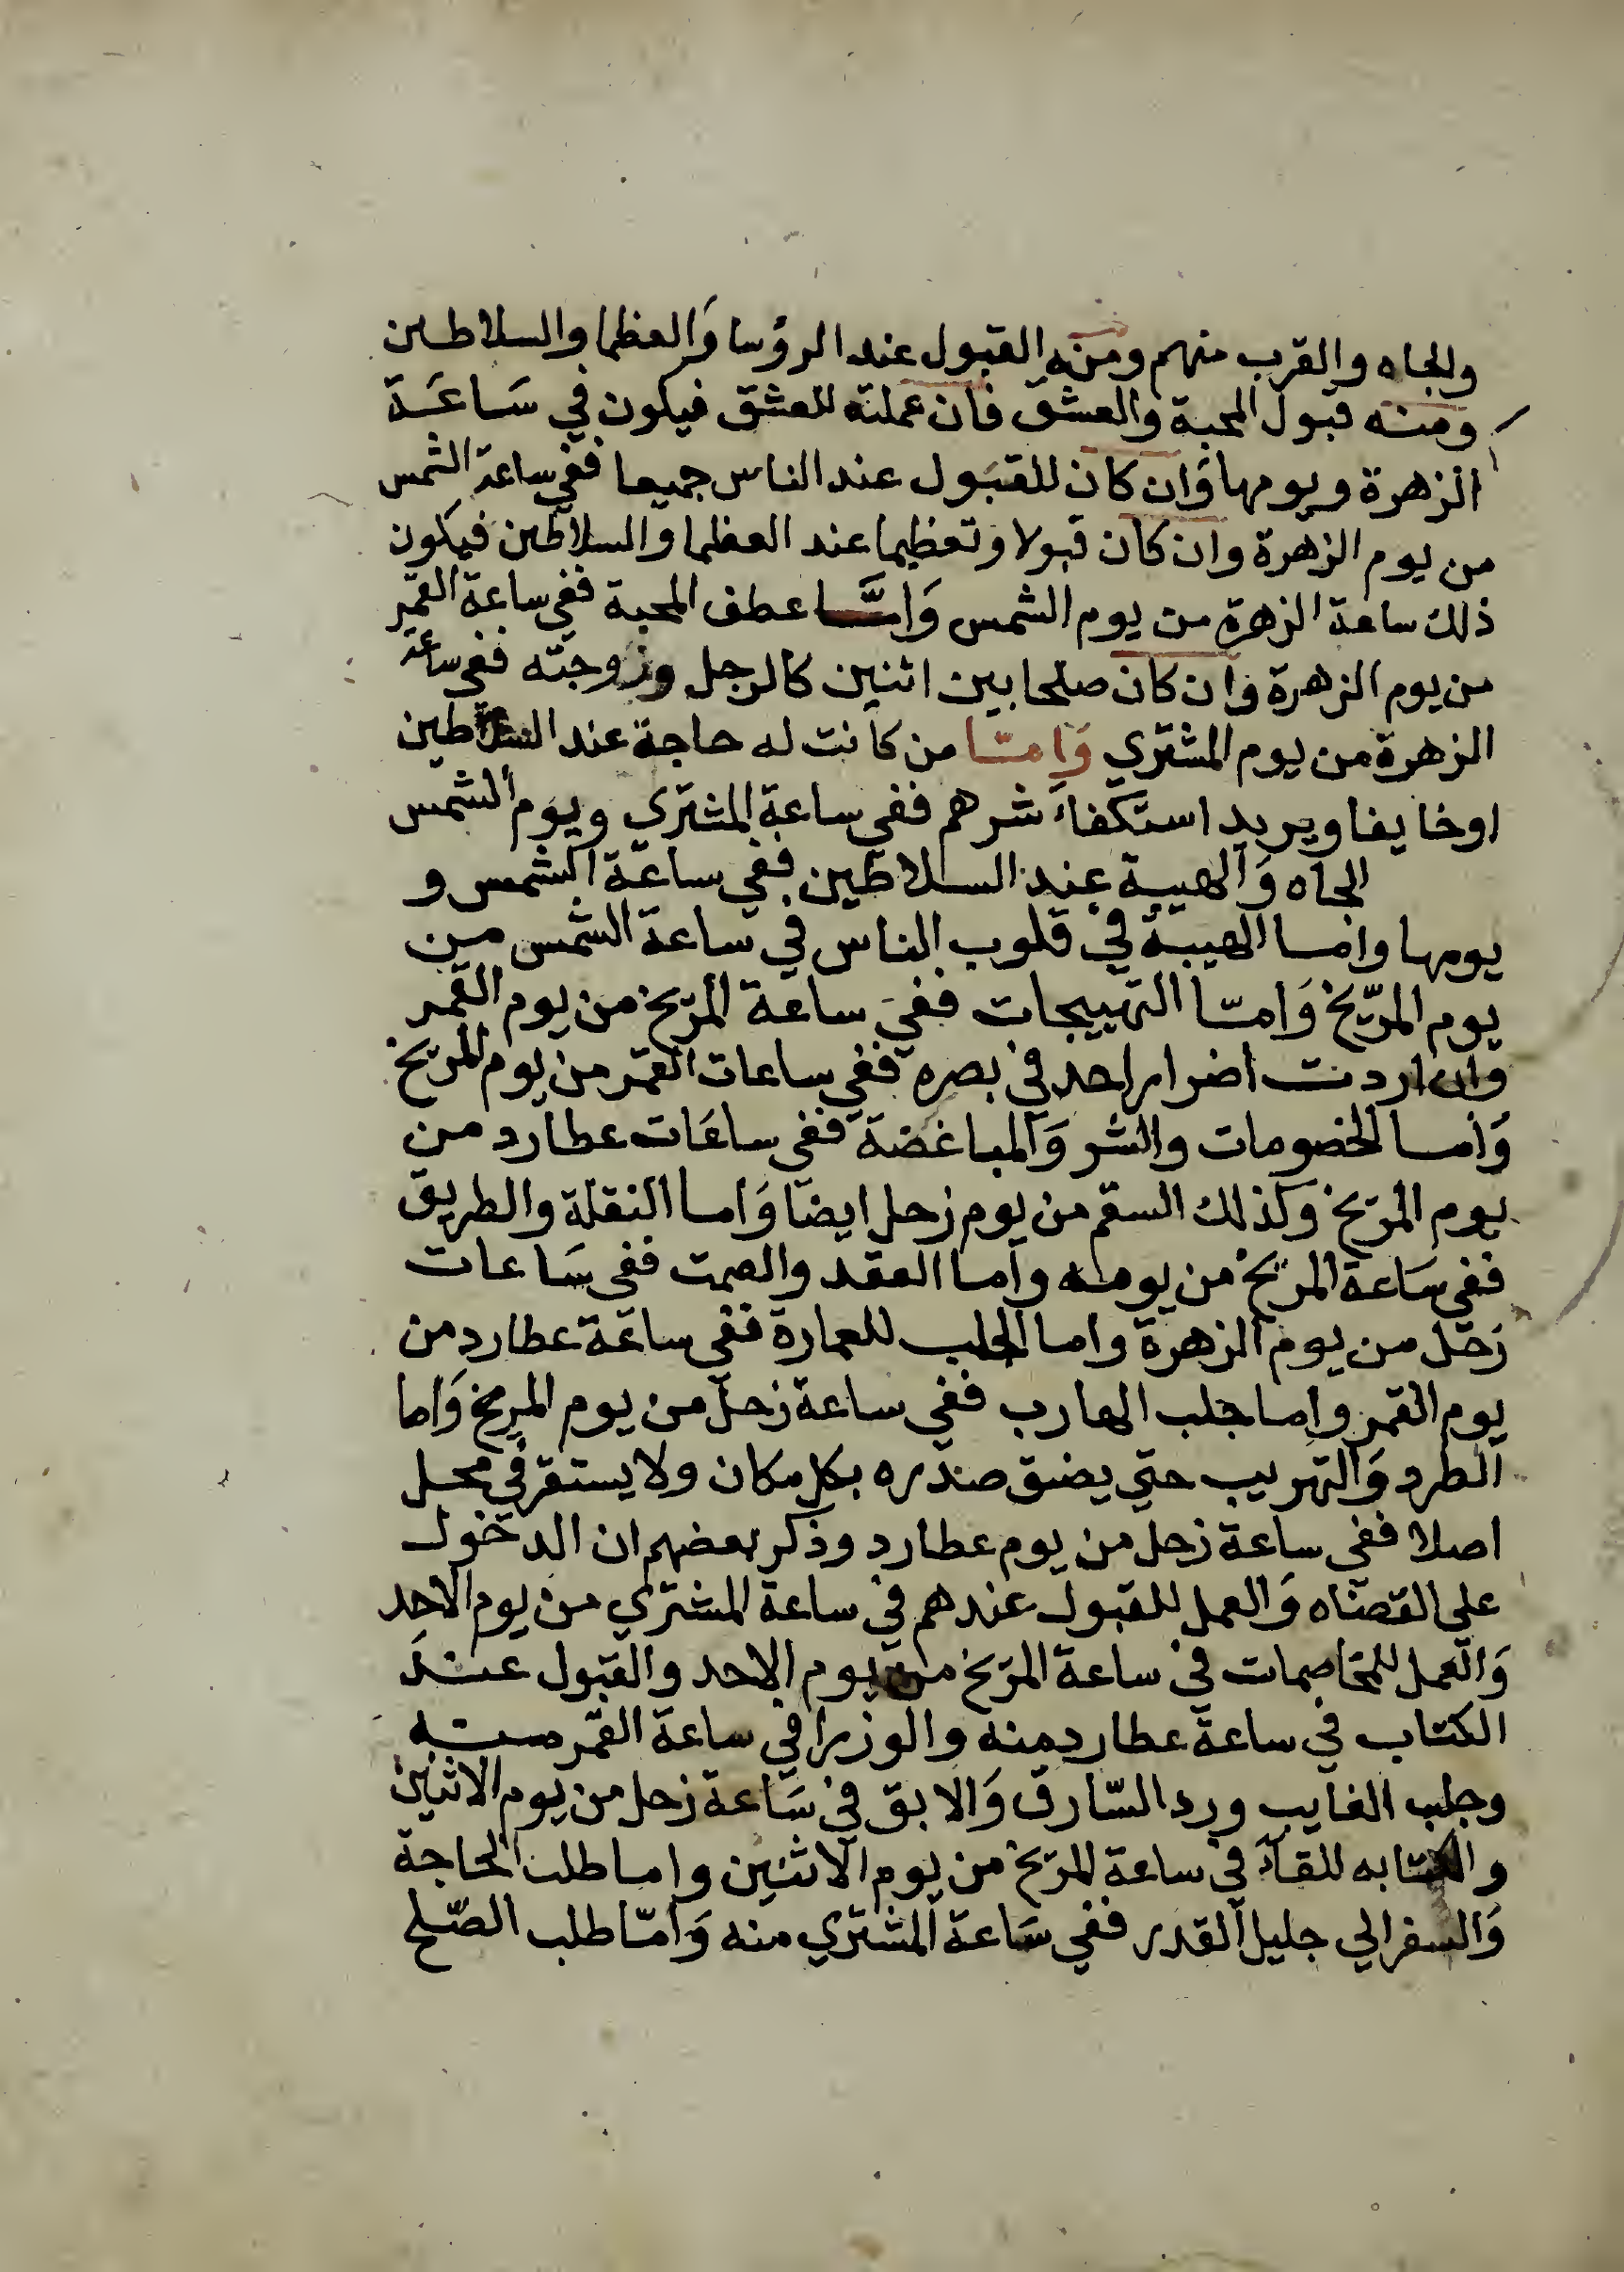 والجاه والقرب منهم ومنه القبول عند الرؤسا وَالعظما والسلاطين
ومنه قبول المحبة والعشق فان عملته للعشق فيكون في سَاعَة
الزهرة ويومها وَان كان للقبَول عند الناس جميعا ففي ساعة الشمس
من يوم الزهرة وان كان قبولا وتعظيما عند العظما والسلاطين فيكون
ذلك ساعة الزهرة من يوم الشمس وَامَّا عطف المحبة ففي ساعة القمر
من يوم الزهرة وان كان صلحا بين اثنين كالرجل وزوجته ففي ساعة
الزهرة من يوم المشتري وَامّا من كانت له حاجة عند السلاطين
اوخايفا ويريد استكفاء شرهم ففي ساعة المشتري ويوم الشمس
الجاه وَالهيبة عند السلاطين ففي ساعة الشمس و
يومها واما الهيبة في قلوب الناس في ساعة الشمس من
يوم المرّيخ وَامّا التهييجات ففي ساعة المرّيخ من يوم القمر
وان اردت اضرار احد في بصره ففي ساعات القمر من يوم المريخ
وَاما الخصومات والشر وَالمباغضة ففي ساعَات عطارد من
يوم المرّيخ وكذلك السقم من يوم زحل ايضا وَاما النقلة والطريق
ففي سَاعة المريخ من يومه واما العقد والصمت ففي سَاعات
زحل من يوم الزهرة واما الجلب للعمارة ففي ساعة عطارد من
يوم القمر واما جلب الهارب ففي ساعة زحل من يوم المريخ وَاما
الطرد وَالتهريب حتي يضيق صدره بكل مكان ولا يستقر في محل
اصلا ففي ساعة زحل من يوم عطارد وذكر بعضهم ان الدخول
علي القضاه وَالعمل للقبول عندهم في ساعة المشتري من يوم الاحد
وَالعمل للمخاصمات في ساعة المرّيخ من يوم الاحد والقبول عندَ
الكتاب في ساعة عطارد منه والوزرا في ساعة القمر منه
وجلب الغايب ورد السّارق وَالابق في سَاعة زحل من يوم الاثنين
والكتابه للقاء في ساعة المرّيخ من يوم الاثنين واما طلب الحاجة
وَالسفر الي جليل القدر ففي سَاعة المشتري منه وَامّا طلب الصّلح